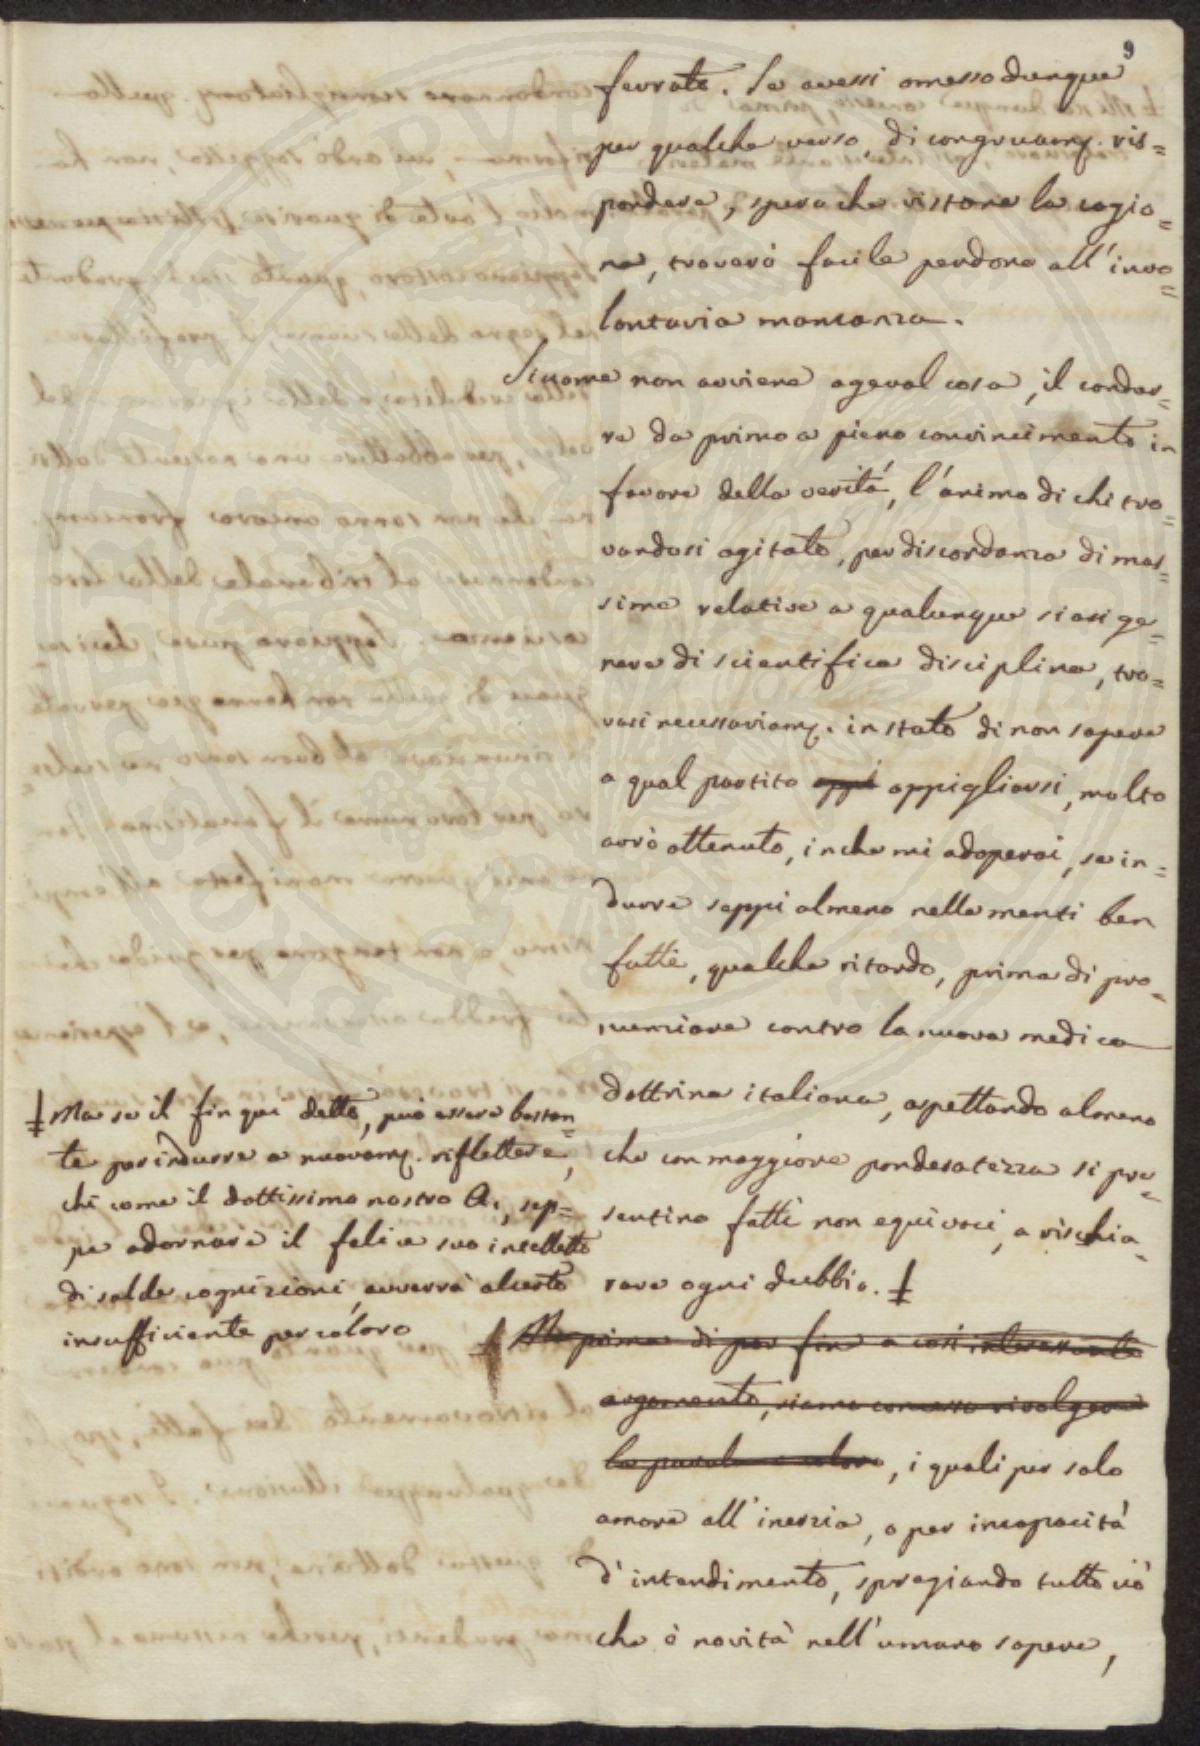 9
fervato. Se avessi omesso dunque
per qualche verso, di congruam. ris=
pondere, spero che vistone la cagio=
ne, troverò facile perdono all'invo=
lontaria mancanza.
Siccome non avviene ageval cosa, il condur=
re da primo a pieno convincimento in
favore della verità, l'animo di chi tro=
vandosi agitato, per discordanza di mas=
sime relative a qualunque siasi ge=
nere di scientifica disciplina, tro=
vasi necessariam. in stato di non sapere
a qual partito appi appigliarsi, molto
avrò ottenuto, in che mi adoperai, se in=
durre seppi almeno nelle menti ben
fatte, qualche ritardo, prima di pro=
nunciare contro la nuova medica
dottrina italiana, aspettando almeno
che con maggiore ponderatezza si pre=
sentino fatti non equivoci, a rischia=
rare ogni dubbio. ‡
‡ Ma se il fin qui detto, può essere bastan=
te per indurre a nuovam. riflettere,
chi come il dottissimo nostro A., sep=
pe adornare il felice suo intelletto
di salde cognizioni, avverrà al certo
insufficiente per coloro
Ma prima di por fine a così interessante
argomento, siami concesso rivolgere
la parola a coloro, i quali per solo
amore all'inerzia, o per incapacità
d'intendimento, spregiando tutto ciò
che è novità nell'umano sapere,